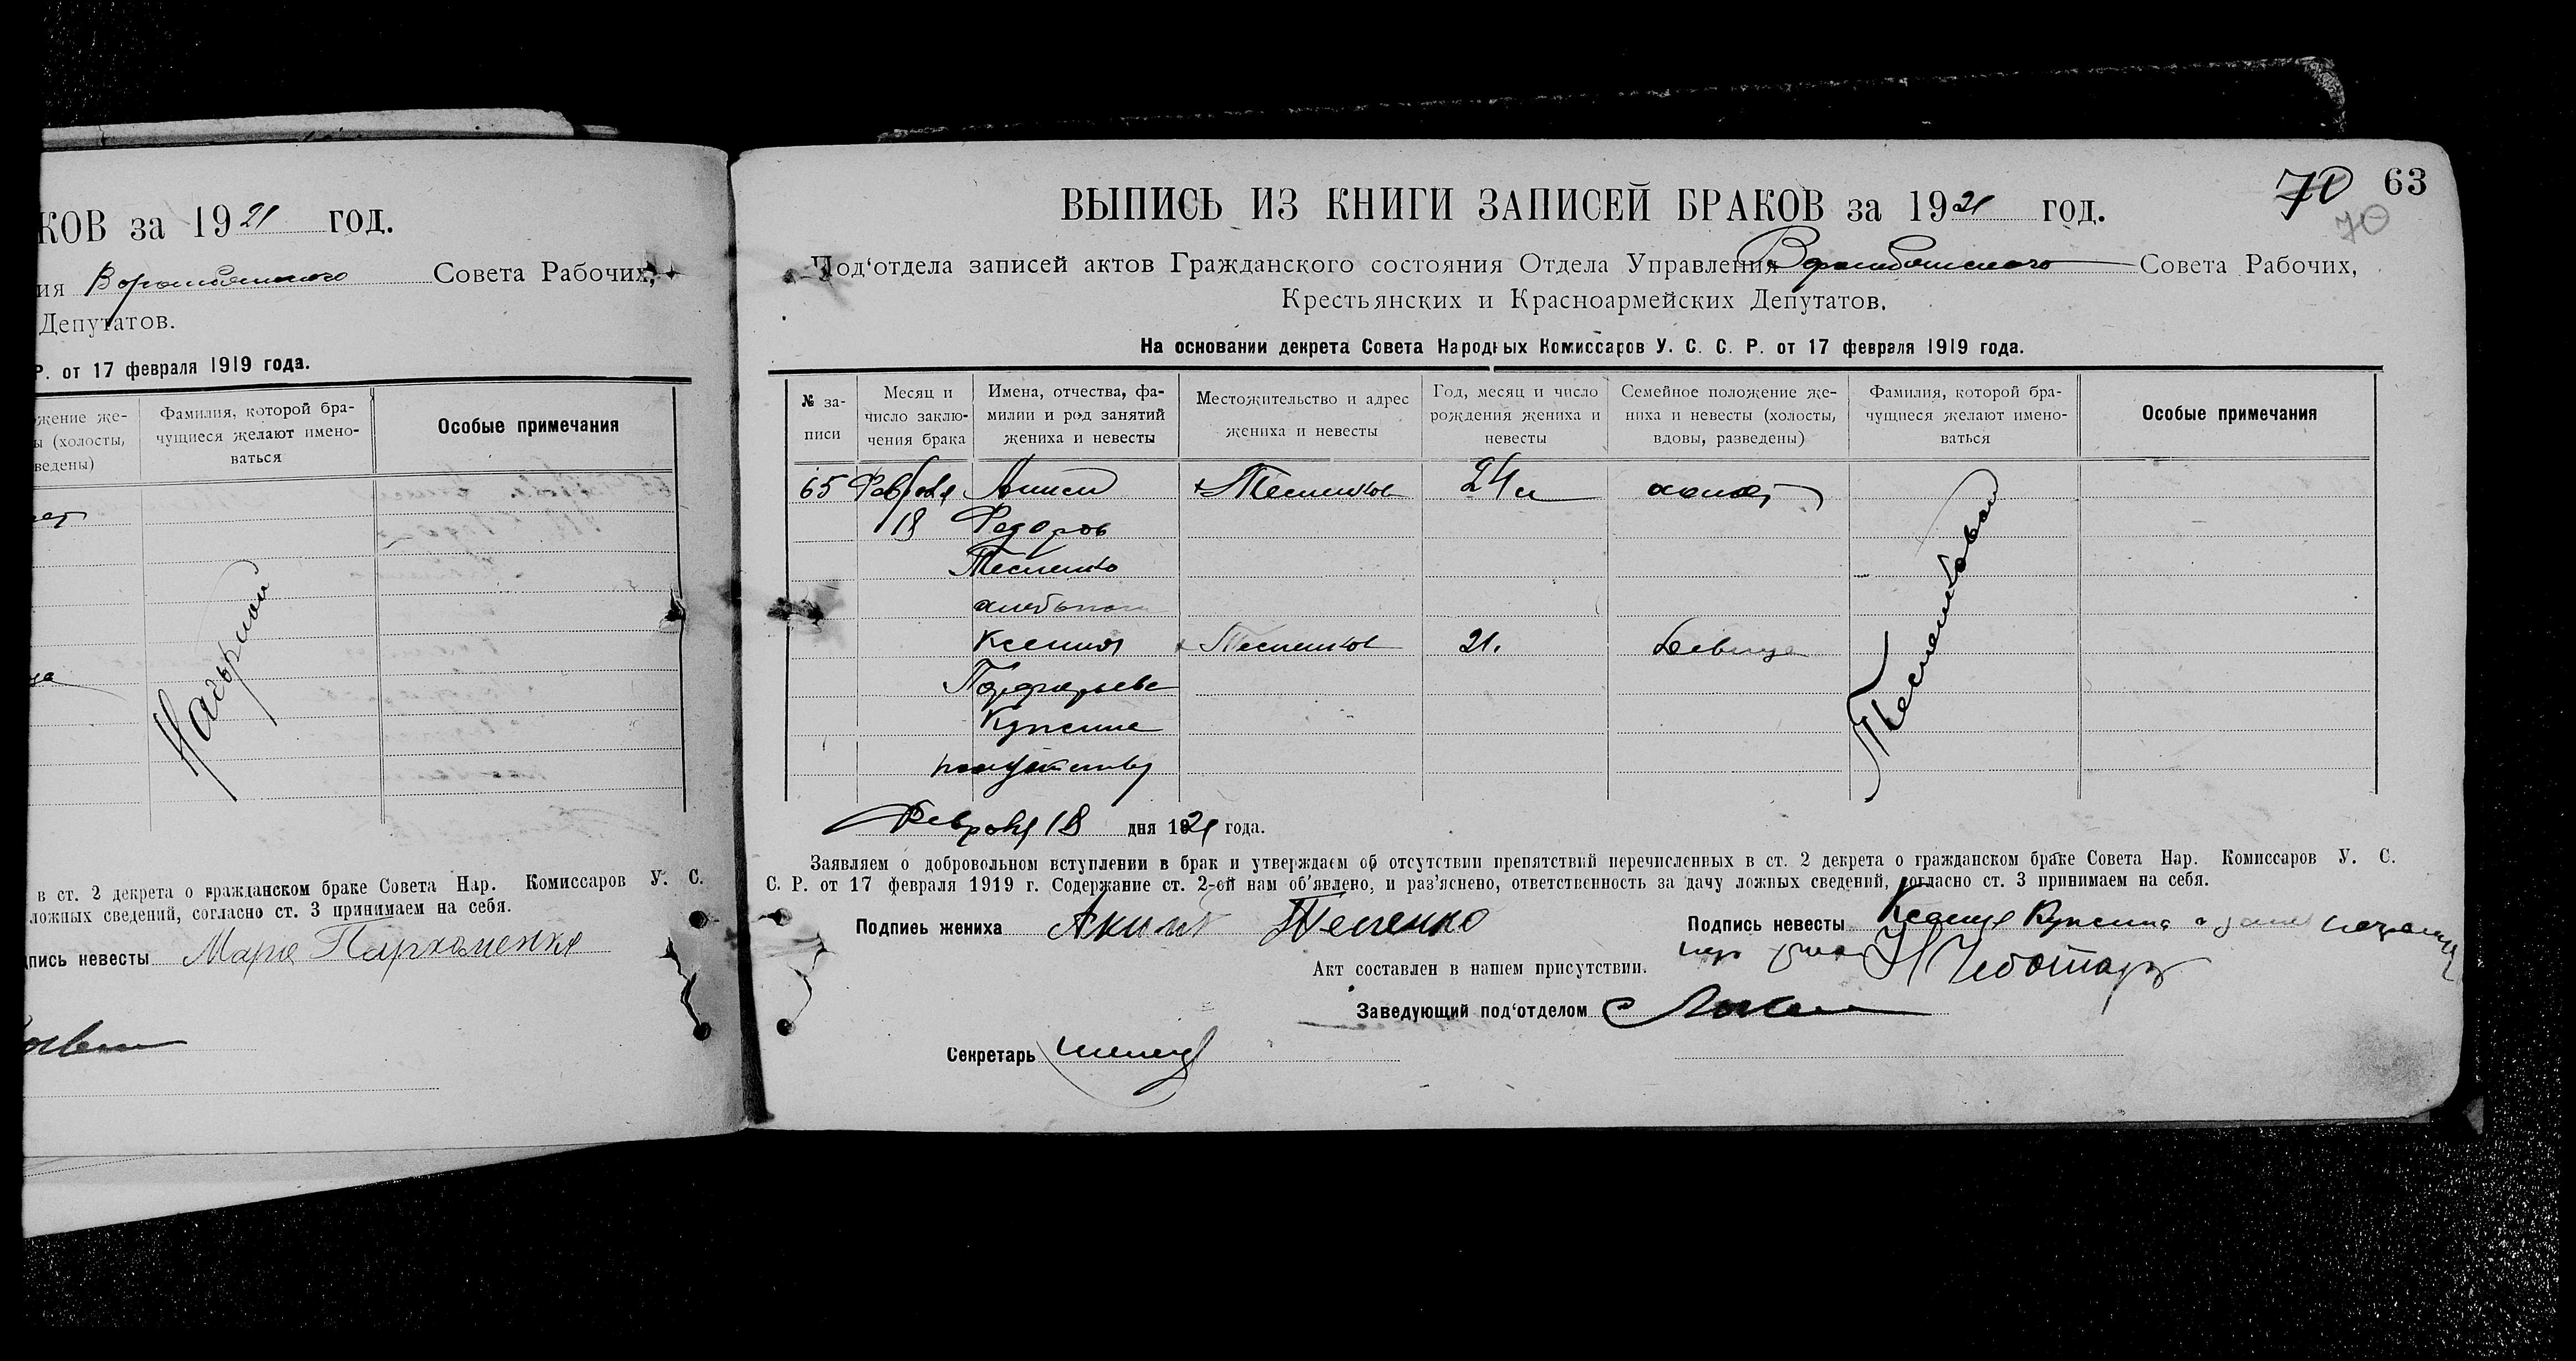 КОВ за 1921 год.
ия Ворожбянского Совета Рабочих,
Депутатов.
Р. от 17 февраля 1919 года.
жение же-
ы (холосты,
ведены)
Фамилия, которой бра-
чущиеся желают имено-
ваться
Особые примечания
Нагорной
в ст. 2 декрета о гражданском браке Совета Нар. Комиссаров У. С.
ложных сведений, согласно ст. 3 принимаем на себя.
пись невесты Мария Пархоменко
70 63
70
ВЫПИСЬ ИЗ КНИГИ ЗАПИСЕЙ БРАКОВ за 1921 год.
Под‘отдела записей актов Гражданского состояния Отдела Управления Ворожбянского Совета Рабочих,
Крестьянских и Красноармейских Депутатов.
На основании декрета Совета Народных Комиссаров У. С. С. Р. от 17 февраля 1919 года.
№ за-
писи
Месяц и
число заклю-
чения брака
Имена, отчества, фа-
милии и род занятий
жениха и невесты
Местожительство и адрес
жениха и невесты
Год, месяц и число
рождения жениха и
невесты
Семейное положение же-
ниха и невесты (холосты,
вдовы, разведены)
Фамилия, которой бра-
чущиеся желают имено-
ваться
Особые примечания
65 Февраля 24 холост
18 Федоров
Тесленко
Ксения 21. Девица
Порфирьева
Февраля 18 дня 1921 года.
Заявляем о добровольном вступлении в брак и утверждаем об отсутствии препятствий перечисленных в ст. 2 декрета о гражданском браке Совета Нар. Комиссаров У. С.
С. Р. от 17 февраля 1919 г. Содержание ст. 2-ой нам об'явлено, и раз'яснено, ответственность за дачу ложных сведений, согласно ст. 3 принимаем на себя.
Подпись жениха Аким Тесленко
Подпись невесты Ксения
Н Чеботарь
Акт составлен в нашем присутствии.
Заведующий под‘отделом
Секретарь